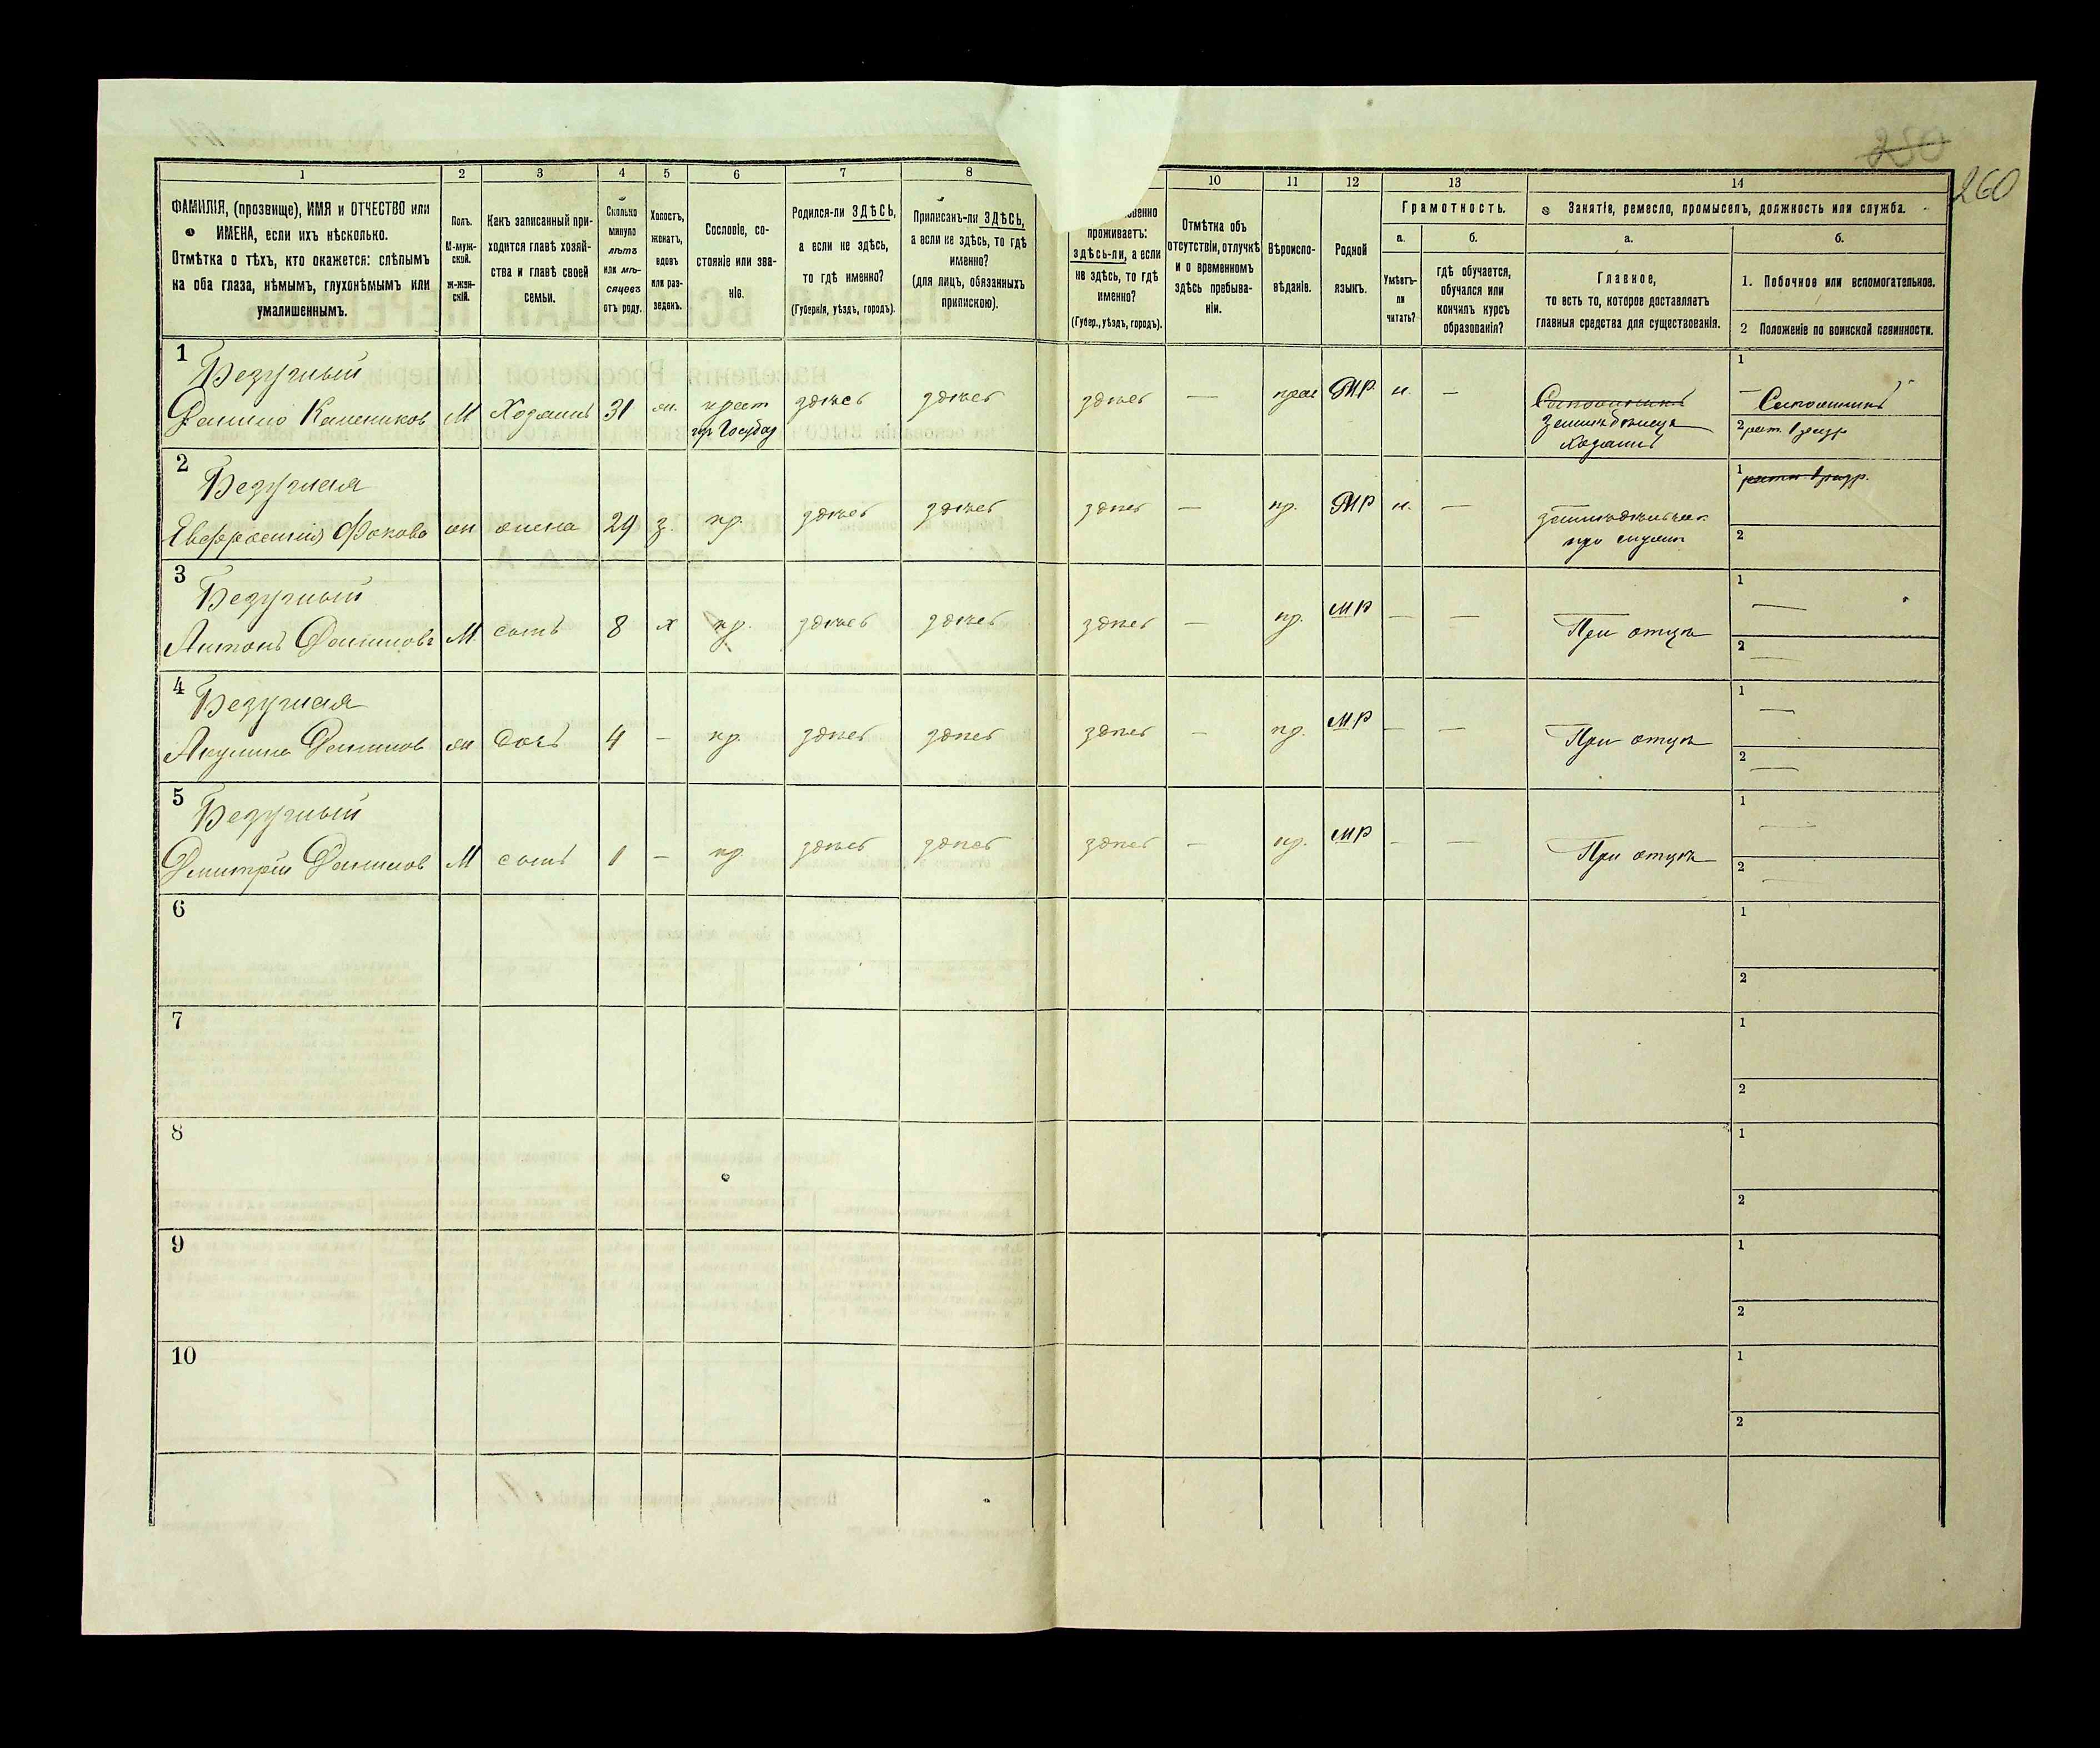 250
260
1 2 3 4 5 6 7 8 10 11 12 13 14
ФАМИЛІЯ, (прозвище), ИМЯ и ОТЧЕСТВО или
ИМЕНА, если ихъ нѣсколько.
Отмѣтка о тѣхъ, кто окажется: слѣпымъ
на оба глаза, нѣмымъ, глухонѣмымъ или
умалишеннымъ.
Полъ.
М-муж-
ской.
Ж-жен-
скій.
Какъ записанный при-
ходится главѣ хозяй-
ства и главѣ своей
семьи.
Сколько
минуло
лѣтъ
или мѣ-
сяцевъ
отъ роду.
Холостъ,
женатъ,
вдовъ
или раз-
веденъ.
Сословіе, со-
стояніе или зва-
ніе.
Родился-ли ЗДѢСЬ,
а если не здѣсь,
то гдѣ именно?
(Губернія, уѣздъ, городъ).
Приписанъ-ли ЗДѢСЬ,
а если не здѣсь, то гдѣ
именно?
(для лицъ, обязанныхъ
припискою).
венно
проживаетъ:
здѣсь-ли, а если
не здѣсь, то гдѣ
именно?
(Губер., уѣздъ, городъ).
Отмѣтка объ
отсутствіи, отлучкѣ
и о временномъ
здѣсь пребыва-
ніи.
Вѣроиспо-
вѣданіе.
Родной
языкъ.
Грамотность.
а.
б.
Умѣетъ-
ли
читать?
гдѣ обучается,
обучался или
кончилъ курсъ
образованія?
Занятіе, ремесло, промыселъ, должность или служба.
а.
б.
Главное,
то есть то, которое доставляетъ
главныя средства для существованія.
1. Побочное или вспомогательное.
2 Положеніе по воинской повинности.
1
Безручный
Данило Калениковъ М Хозяинъ 31 ж. крест здѣсь здѣсь здѣсь — прав МР н. —
Сапожникъ
хозяинъ
1
— Сапожникъ
2 рат. 1 разр
2
Безручная
Евфросинія Фокова ж жена 29 з. кр. здѣсь здѣсь здѣсь — пр. МР н. —
при мужѣ
1 ратн 1 разр.
2
3
Безручный
Антонъ Даниловъ М сынъ 8 х кр. здѣсь здѣсь здѣсь — пр. МР — — При отцѣ
1 —
2 —
4
Безручная
Акулина Данилов ж дочь 4 - кр. здѣсь здѣсь здѣсь - пр. МР - — При отцѣ
1 —
2 —
5
Безручный
Дмитрій Данилов М сынъ 1 - кр здѣсь здѣсь здѣсь — пр. МР - — При отцѣ
1 —
2 —
6
1
2
7
1
2
8
1
2
9
1
2
10
1
2